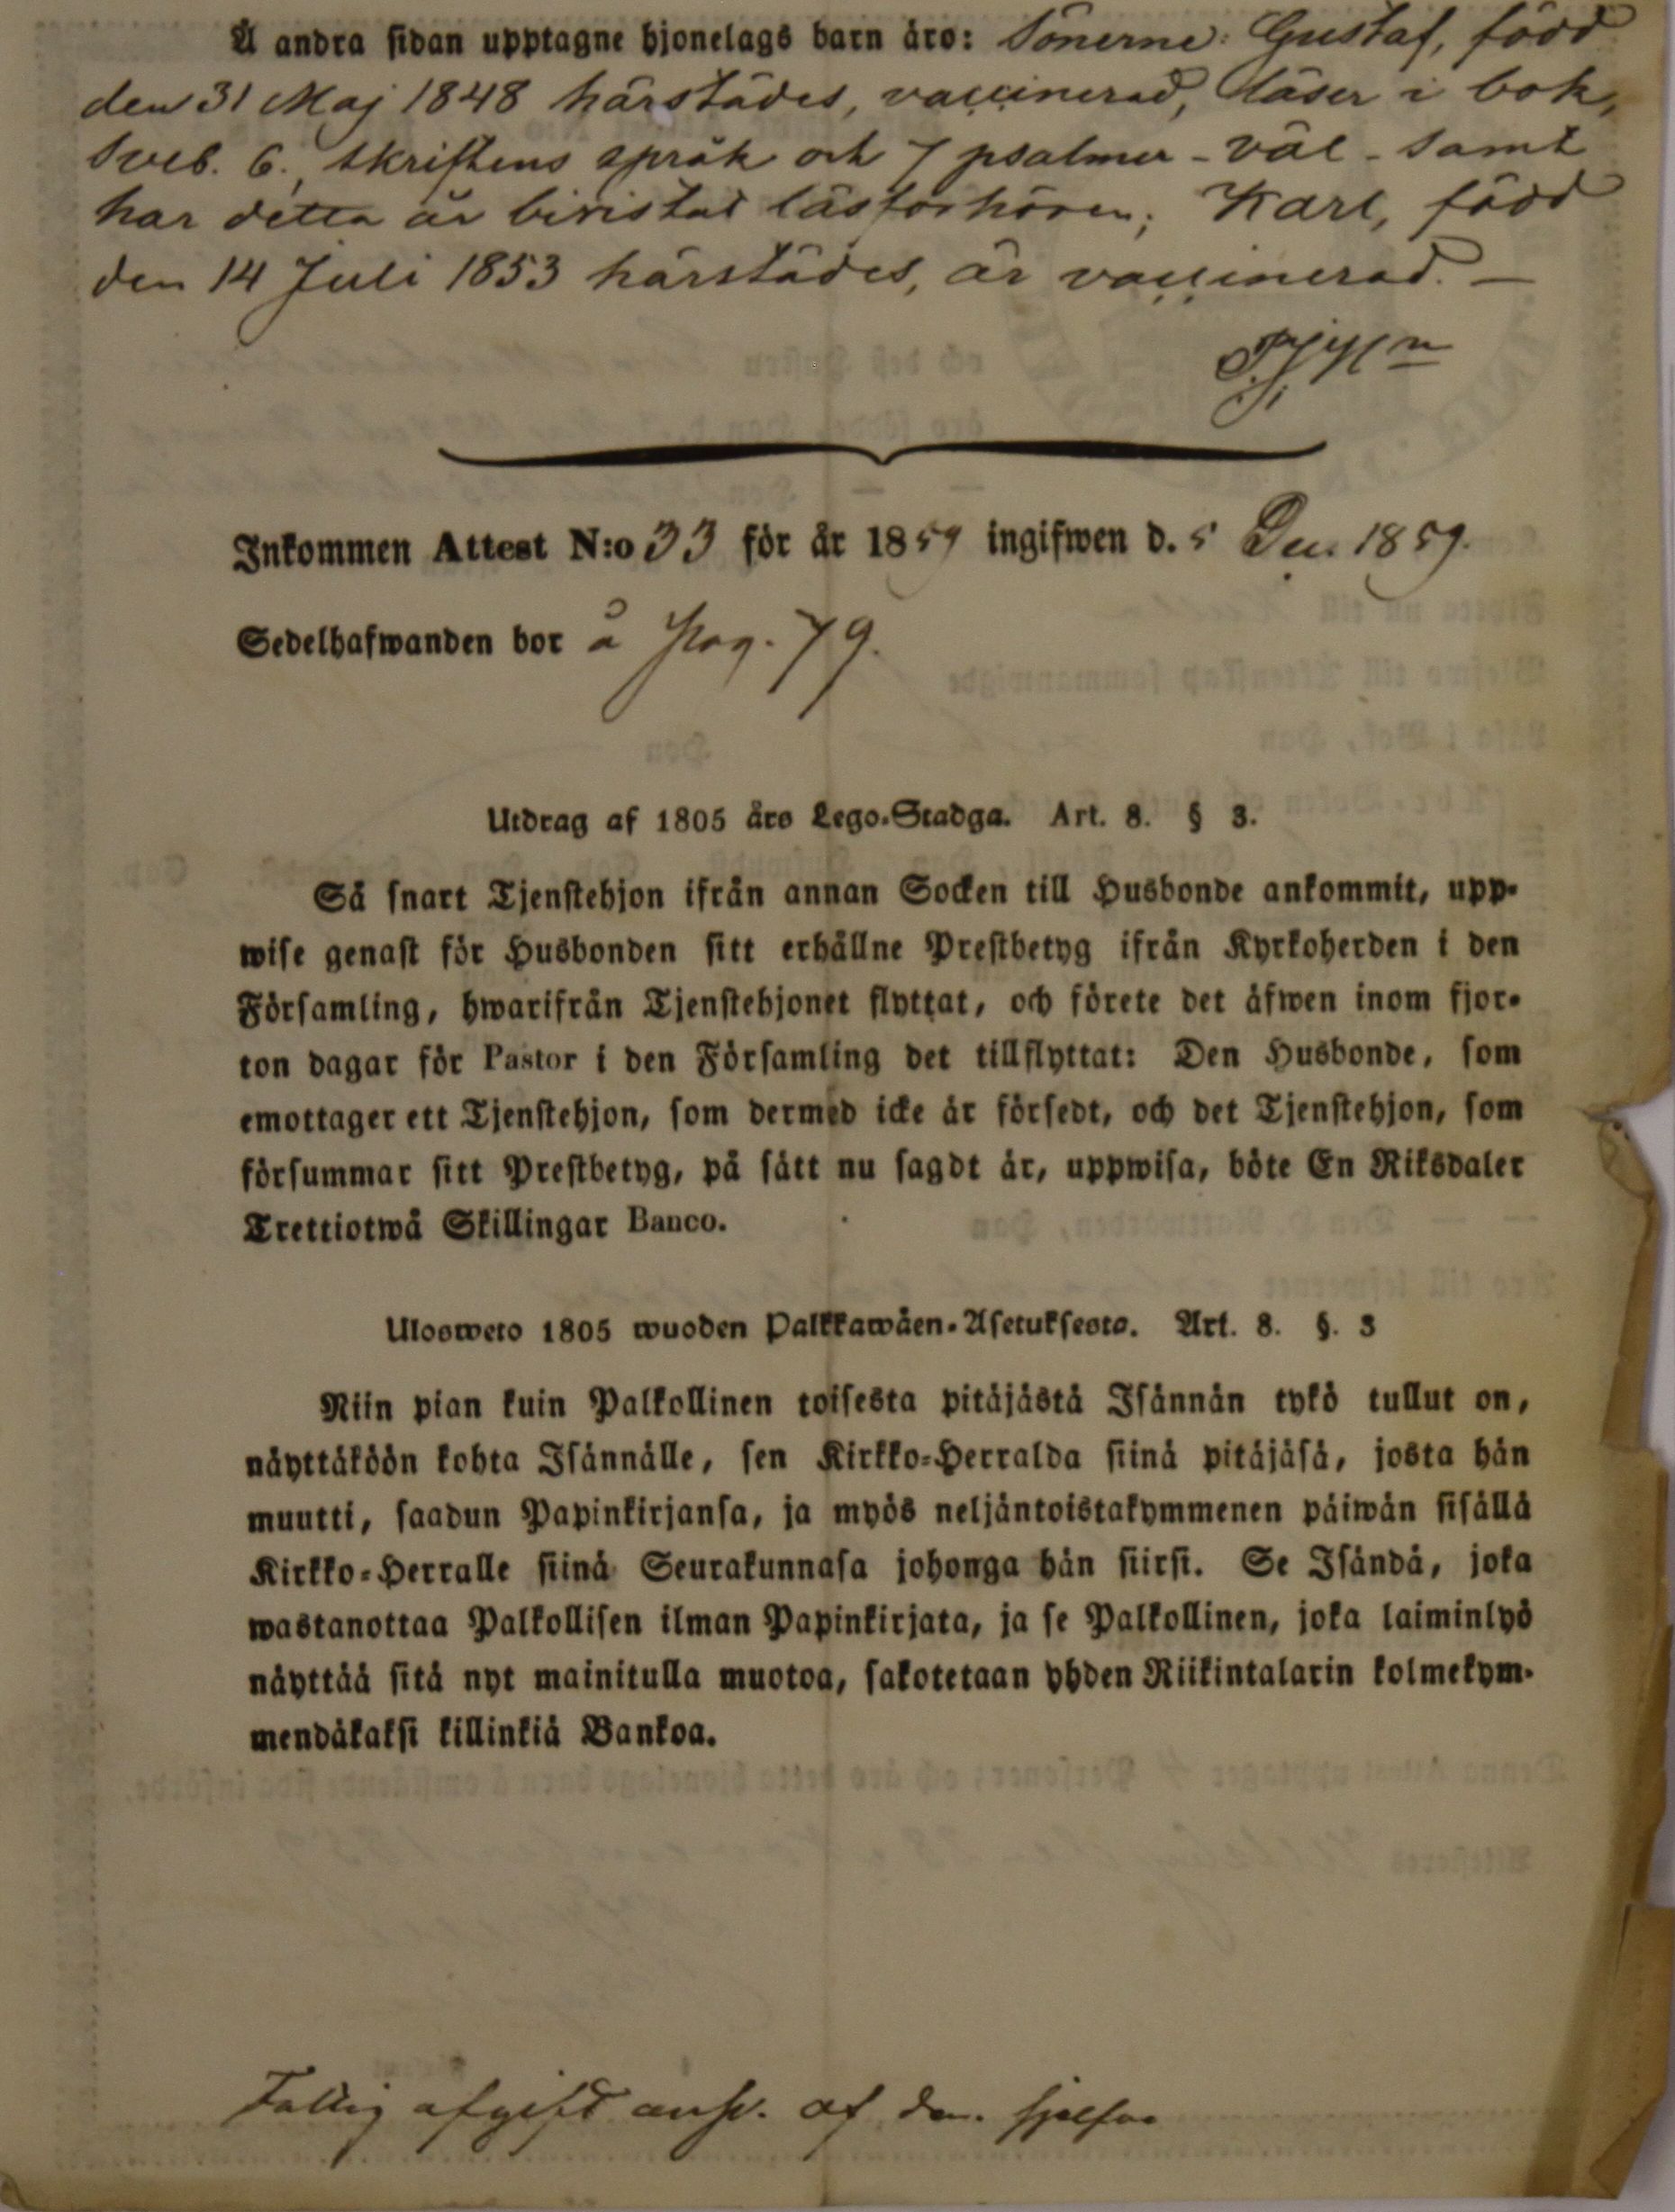 Å andra sidan upptagne hjonelags barn äro: Sönerne: Gustaf, född
den 31 Maj 1848 härstädes, vaccinerad, läser i bok,
Sveb. 6., skriftens språk och 7 psalmer - väl - samt
har detta år bivistat läsförhören; Karl, född
den 14 Juli 1853 härstädes, är vaccinerad. —
Inkommen Attest N:o 33 för år 1859 ingifwen d. 5 Dec. 1859.
Sedelhafwanden bor å pag. 79.
Utdrag af 1805 års Lego-Stadga. Art. 8. § 3.
Så snart Tjenstehjon ifrån annan Socken till Husbonde ankommit, upp-
wise genast för Husbonden sitt erhållne Prestbetyg ifrån Kyrkoherden i den
Församling, hwarifrån Tjenstehjonet flyttat, och förete det äfwen inom fjor-
ton dagar för Pastor i den Församling det tillflyttat: Den Husbonde, som
emottager ett Tjenstehjon, som dermed icke är försedt, och det Tjenstehjon, som
försummar sitt Prestbetyg, på sätt nu sagdt är, uppwisa, böte En Riksdaler
Trettiotwå Skillingar Banco.
Ulosweto 1805 wuoden Palkkawäen-Asetuksesta. Art. 8. §. 3
Niin pian kuin Palkollinen toisesta pitäjästä Isännän tykö tullut on,
näyttäköön kohta Isännälle, sen Kirkko-Herralda siinä pitäjäsä, josta hän
muutti, saadun Papinkirjansa, ja myös neljäntoistakymmenen päiwän sisällä
Kirkko-Herralle siinä Seurakunnasa johonga hän siirsi. Se Isändä, joka
wastanottaa Palkollisen ilman Papinkirjata, ja se Palkollinen, joka laiminlyö
näyttää sitä nyt mainitulla muotoa, sakotetaan yhden Riikintalarin kolmekym-
mendäkaksi killinkiä Bankoa.
afgift af den sjelfva